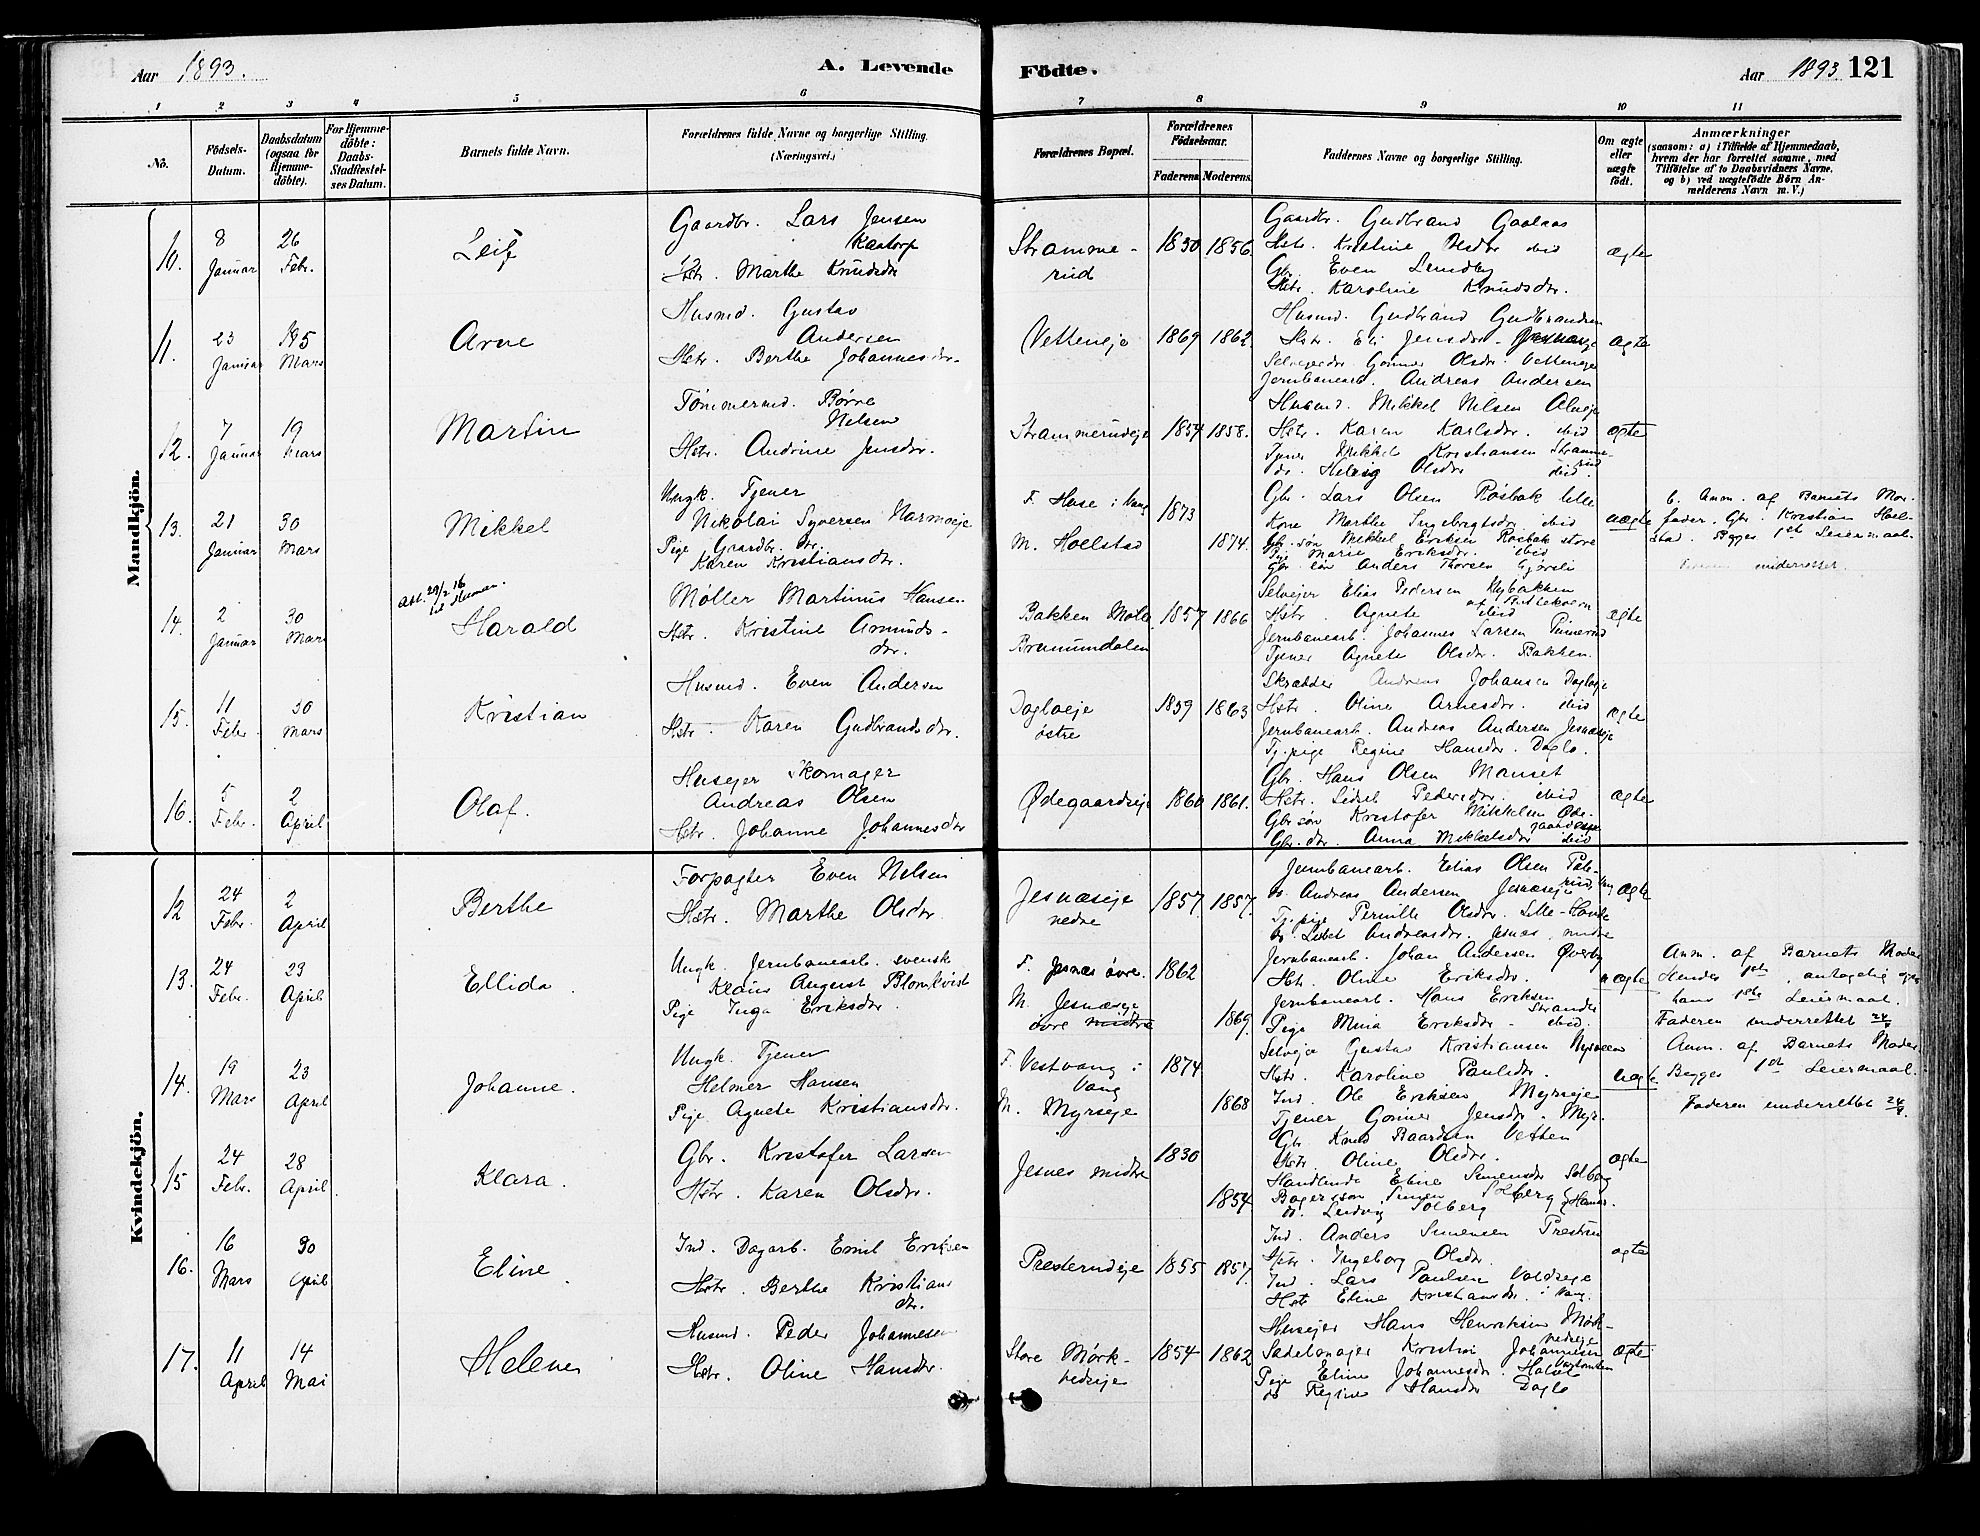 Aar 1893.
A. Levende
Födte.
Aar 1893 121
1 2 3 4 5 6 7 8 9 10 11
No.
Födsels-
Datum.
Daabsdatum
(ogsaa for
Hjemme-
döbte).
For Hjemme-
döbte:
Daabs-
Stadfestel-
ses Datum.
Barnets fulde Navn.
Forældrenes fulde Navne og borgerlige Stilling.
(Næringsvei.)
Forældrenes Bopæl.
Forældrenes
Födselsaar.
Faderens. Moderens.
Faddernes Navne og borgerlige Stilling.
Om ægte
eller
uægte
födt.
Anmærkninger
(saasom: a) i Tilfælde af Hjemmedaab,
hvem der har forrettet samme, med
Tilföielse af to Daabsvidners Navne.
og b) ved uægtefödte Börn An-
melderens Navn m. V.)
Mandkjön.
10.
8
Januar
26
Febr.
Leif
Gaardbr. Lars Jensen
Kaatorp
Hstr. Marthe Knudsdr
Stramme-
rud
1850 1856.
Gaardbr. Gudbrand Gaalaas
Hstr. Kristine Olsdr ibid
Gbr. Even Lundby
Hstr. Karoline Knudsdr.
ægte
11.
23
Januar
5
Mars
Arne
Husmd. Gustav
Andersen
Hstr. Berthe Johannesdr.
Vetteneje
1869 1862.
Husmd. Gudbrand Gudbrandsen
Hstr. Eli Jensdr.
Selvejerdr Gunner Olsdr. Vetteneje
Jernbanearb. Andreas Andersen
ægte
12.
7
Januar
19
Mars
Martin
Tömmermd. Børre
Nilsen
Hstr. Andrine Jensdr.
Strammerudeje
1854 1858.
Husmd. Mikkel Nilsen Alueje
Hstr. Karen Karlsdr. ibid
Tjener Mikkel Kristiansen Stramme-
rud
do. Helvig Olsdr ibid.
ægte
13.
21
Januar
30
Mars
Mikkel
Ungk. Tjener
Nikolai Syversen Narmoeje
Pige Gaardbr. dr.
Karen Kristiansdr.
F. Huse i Vang
M. Hoelstad
1873
1874.
Gbr. Lars Olsen Røsbak lille
Kone Marthe Ingebrigtsdr. ibid
Gbr. søn Mikkel Eriksen Røsbak store
Pige Marie Eriksdr. ibid
Gbr. søn Anders Thorsen Gjørsli
uægte
b. Anm. af Barnets Mor-
fader, Gbr. Kristian Hoel-
stad. Begges 1ste Leiermaal.
underrettet.
14.
2
Januar
30
Mars
Harald
Møller Martinus Hansen
Hstr. Kristine Amunds-
dr.
Bakken Mølle
Brumunddalen
1857 1866
Selvejer Elias Pedersen Nybakken
Hstr. Agnete ibid
Jernbanearb. Johannes Larsen Pinnerud
Tjener Agnete Olsdr. Bakken.
ægte
15.
11
Febr.
30
Mars
Kristian
Husmd. Even Andersen
Hstr. Karen Gudbrandsdr.
Dagloeje
østre
1859 1863
Skrædder Andreas Johansen Dagloeje
Hstr. Oline Arnesdr. ibid
Jernbanearb. Andreas Andersen Jesnæseje
Tj.pige Regine Hansdr. Daglo.
ægte
16.
5
Febr.
2
April
Olaf.
Husejer Skomager
Andreas Olsen
Hstr. Johanne Johannesdr
Ødegaardseje
1860 1861.
Gbr. Hans Olsen Manset
Hstr. Lidsel Pedersdr. ibid
Gbr søn Kristofer Mikkelsen Øde-
gaardseje
Gbr. dr. Anna Mikkelsdr ibid
ægte
Kvindekjön.
12
24
Febr.
2
April
Berthe
Forpagter Even Nilsen
Hstr. Marthe Olsdr.
Jesnæseje
nedre
1857 1857.
Jernbanearb. Elias Olsen Pale-
rud, Vang
do. Andreas Andersen Jesnæseje
Tj.pige Pernille Olsdr. Lille-
do. Lisbet Andreasdr. Jesnæs midre
ægte
13.
24
Febr.
23
April
Ellida
Ungk. Jernbanearb. svenske
Klaus August Blomkvist
Pige Inga Eriksdr.
F. Jesnæs øvre.
M. Jesnæseje
øvre midtre
1862
1869.
Jernbanearb. Johan Andersen Øverby
Hstr. Oline Eriksdr.
Jernbanearb. Hans Eriksen
Strande
Pige Mina Eriksdr - ibid.
uægte
Anm. af Barnets Moder
Hendes 1ste, antagelig ogsaa
hans 1ste Leiermaal.
Faderen underrettet 24/4
14.
19
Mars
23
April
Johanne.
Ungk. Tjener
Helmer Hansen
Pige Agnete Kristiansdr.
F. Vestvang i
Vang
M. Myrseje
1874
1868
Selvejer Gustav Kristiansen Myrseen
Hstr. Karoline Paulsdr.
Ind. Ole Eriksen Myrseje
Tjener Gunner Jensdr. Myr.
uægte.
Anm. af Barnets Moder
Begges 1ste Leiermaal.
Faderen underrettet 24/4.
15
24
Febr.
28
April
Klara.
Gbr. Kristofer Larsen
Hstr. Karen Olsdr.
Jesnes midtre
1830
1854
Gbr Knud Baardsen Vetten
Hstr. Oline Olsdr.
Handlende Eline Simensdr Solberg
Bagerssøn Simen Solberg } Hamar.
do. Ludvig Solberg
ægte
16.
16
Mars
30
April
Eline
Ind. Dagarb. Emil Eriksen
Hstr. Berthe Kristians
dr.
Presterudeje
1855 1857.
Ind. Anders Simensen Presterud
Hstr. Ingeborg Olsdr.
Ind. Lars Paulsen Voldseje
Hstr Eline Kristiansdr. i Vang.
ægte
17.
11
April
14
Mai
Helene
Husmd. Peder Johannesen
Hstr. Oline Hansdr.
Store Mørk-
vedseje
1854 1862
Husejer Hans Henriksen Mørk-
vedseje
Sadelmager Kristian Johannesen
Pige Eline Johannesdr.
do Regine Hansdr Daglo
ægte